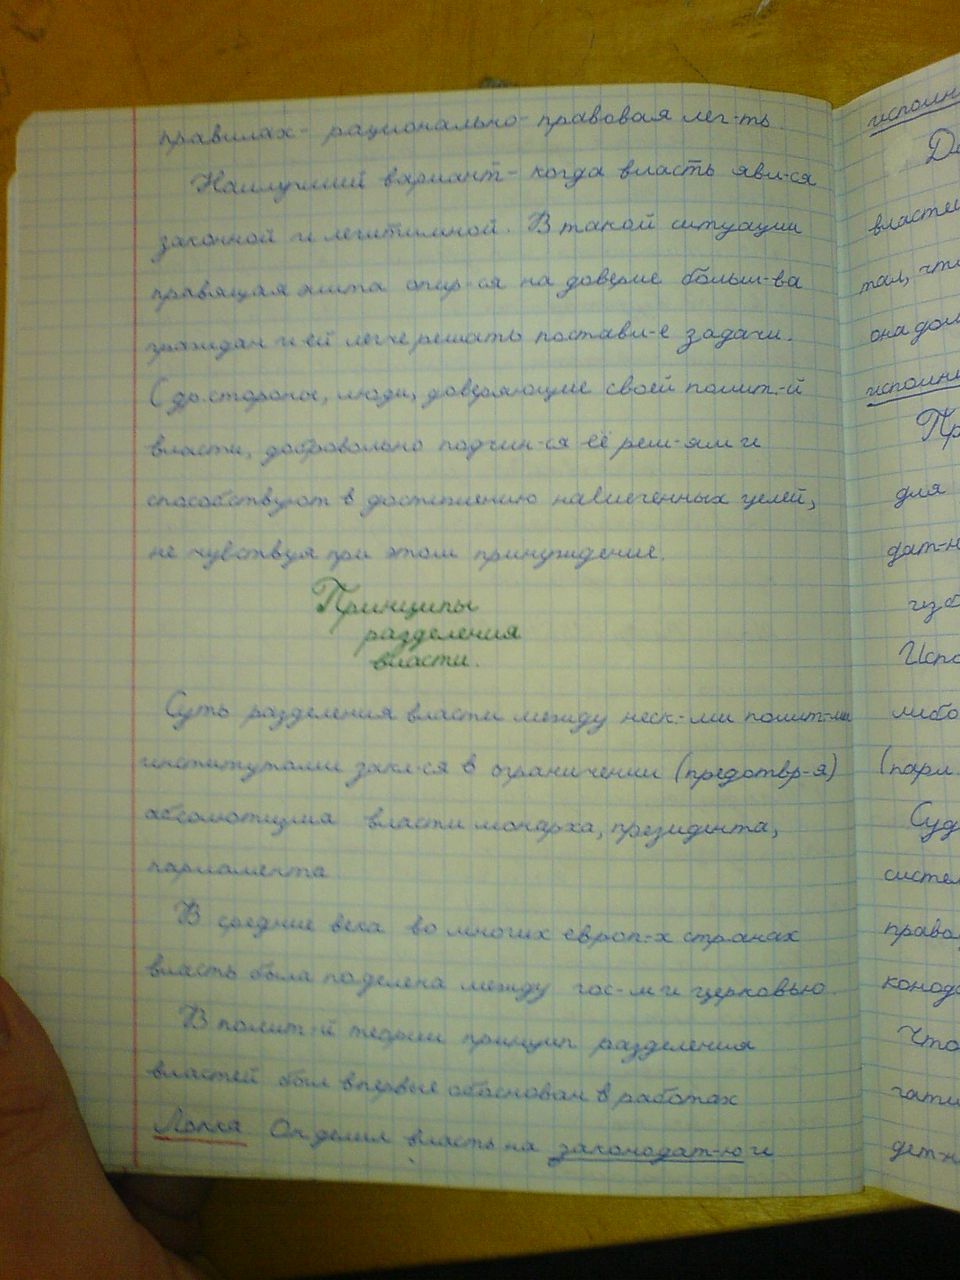 правилах - рационально-правовая лег-ть.
Наилучший вариант - когда власть явл-ся
законной и легитимной. В такой ситуации
правящая элита опир-ся на доверие больш-ва
граждан и ей легче решать поставл-е задачи.
С др. стороны, люди, доверяющие своей полит.-й
власти, добровольно подчин-ся её реш-ям и
способствуют в достижению намеченных целей,
не чувствуя при этом принуждение.
Принципы
разделения
власти.
Суть разделения власти между неск.-ми полит-ми
институтами закл-ся в ограничении (предотвр-я)
абсолютизма власти монарха, президента,
парламента
В средние века во многих европ-х странах
власть была поделена между гос-м и церковью.
В полит-й теории принцип разделения
властей был впервые обоснован в работах
Локка Он делил власть на законодат-ю и
исполн
властей
тал, что
она дол
исполни
Пр
для
дат-н
изб
Испо
либо
(парл.
Суд
систем
право
конода
Что
гати
дет-н